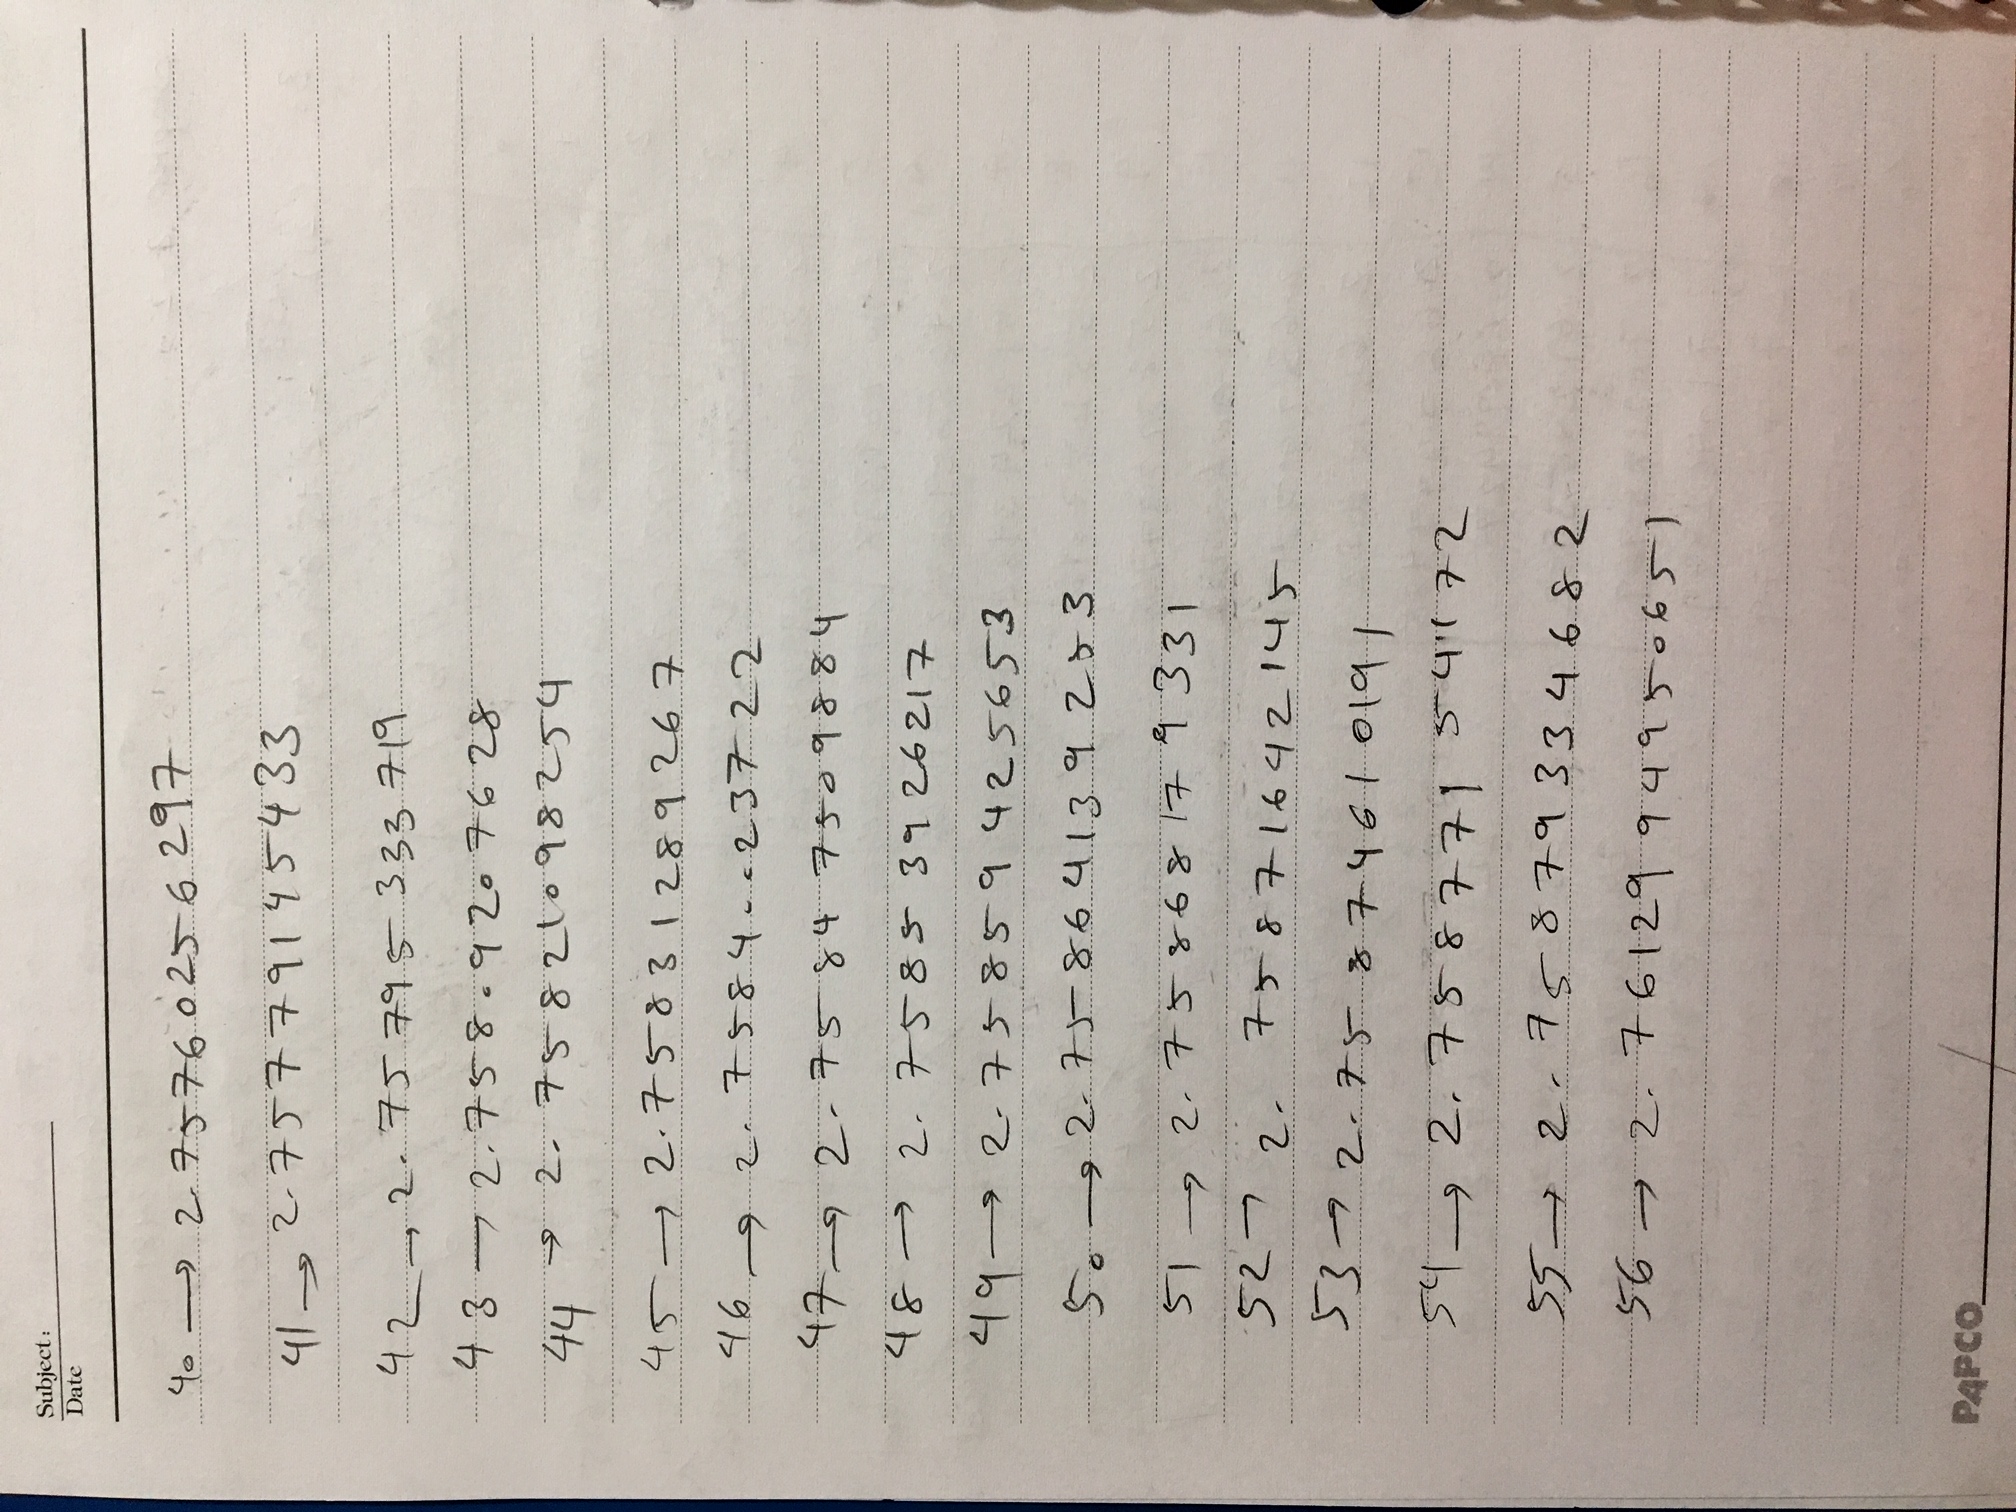 Subject:
Date
40 → 2.75760256297
41 → 2.75779145433
42 → 2.75795333719
43 → 2.75809207628
44 → 2.75821098254
45 → 2.75831289267
46 → 2.75840023722
47 → 2.75847509884
48 → 2.75853926217
49 → 2.75859425653
50 → 2.75864139253
51 → 2.75868179331
52 → 2.75871642145
53 → 2.75874610191
54 → 2.75877154172
55 → 2.75879334682
56 → 2.7612994950651
PAPCO